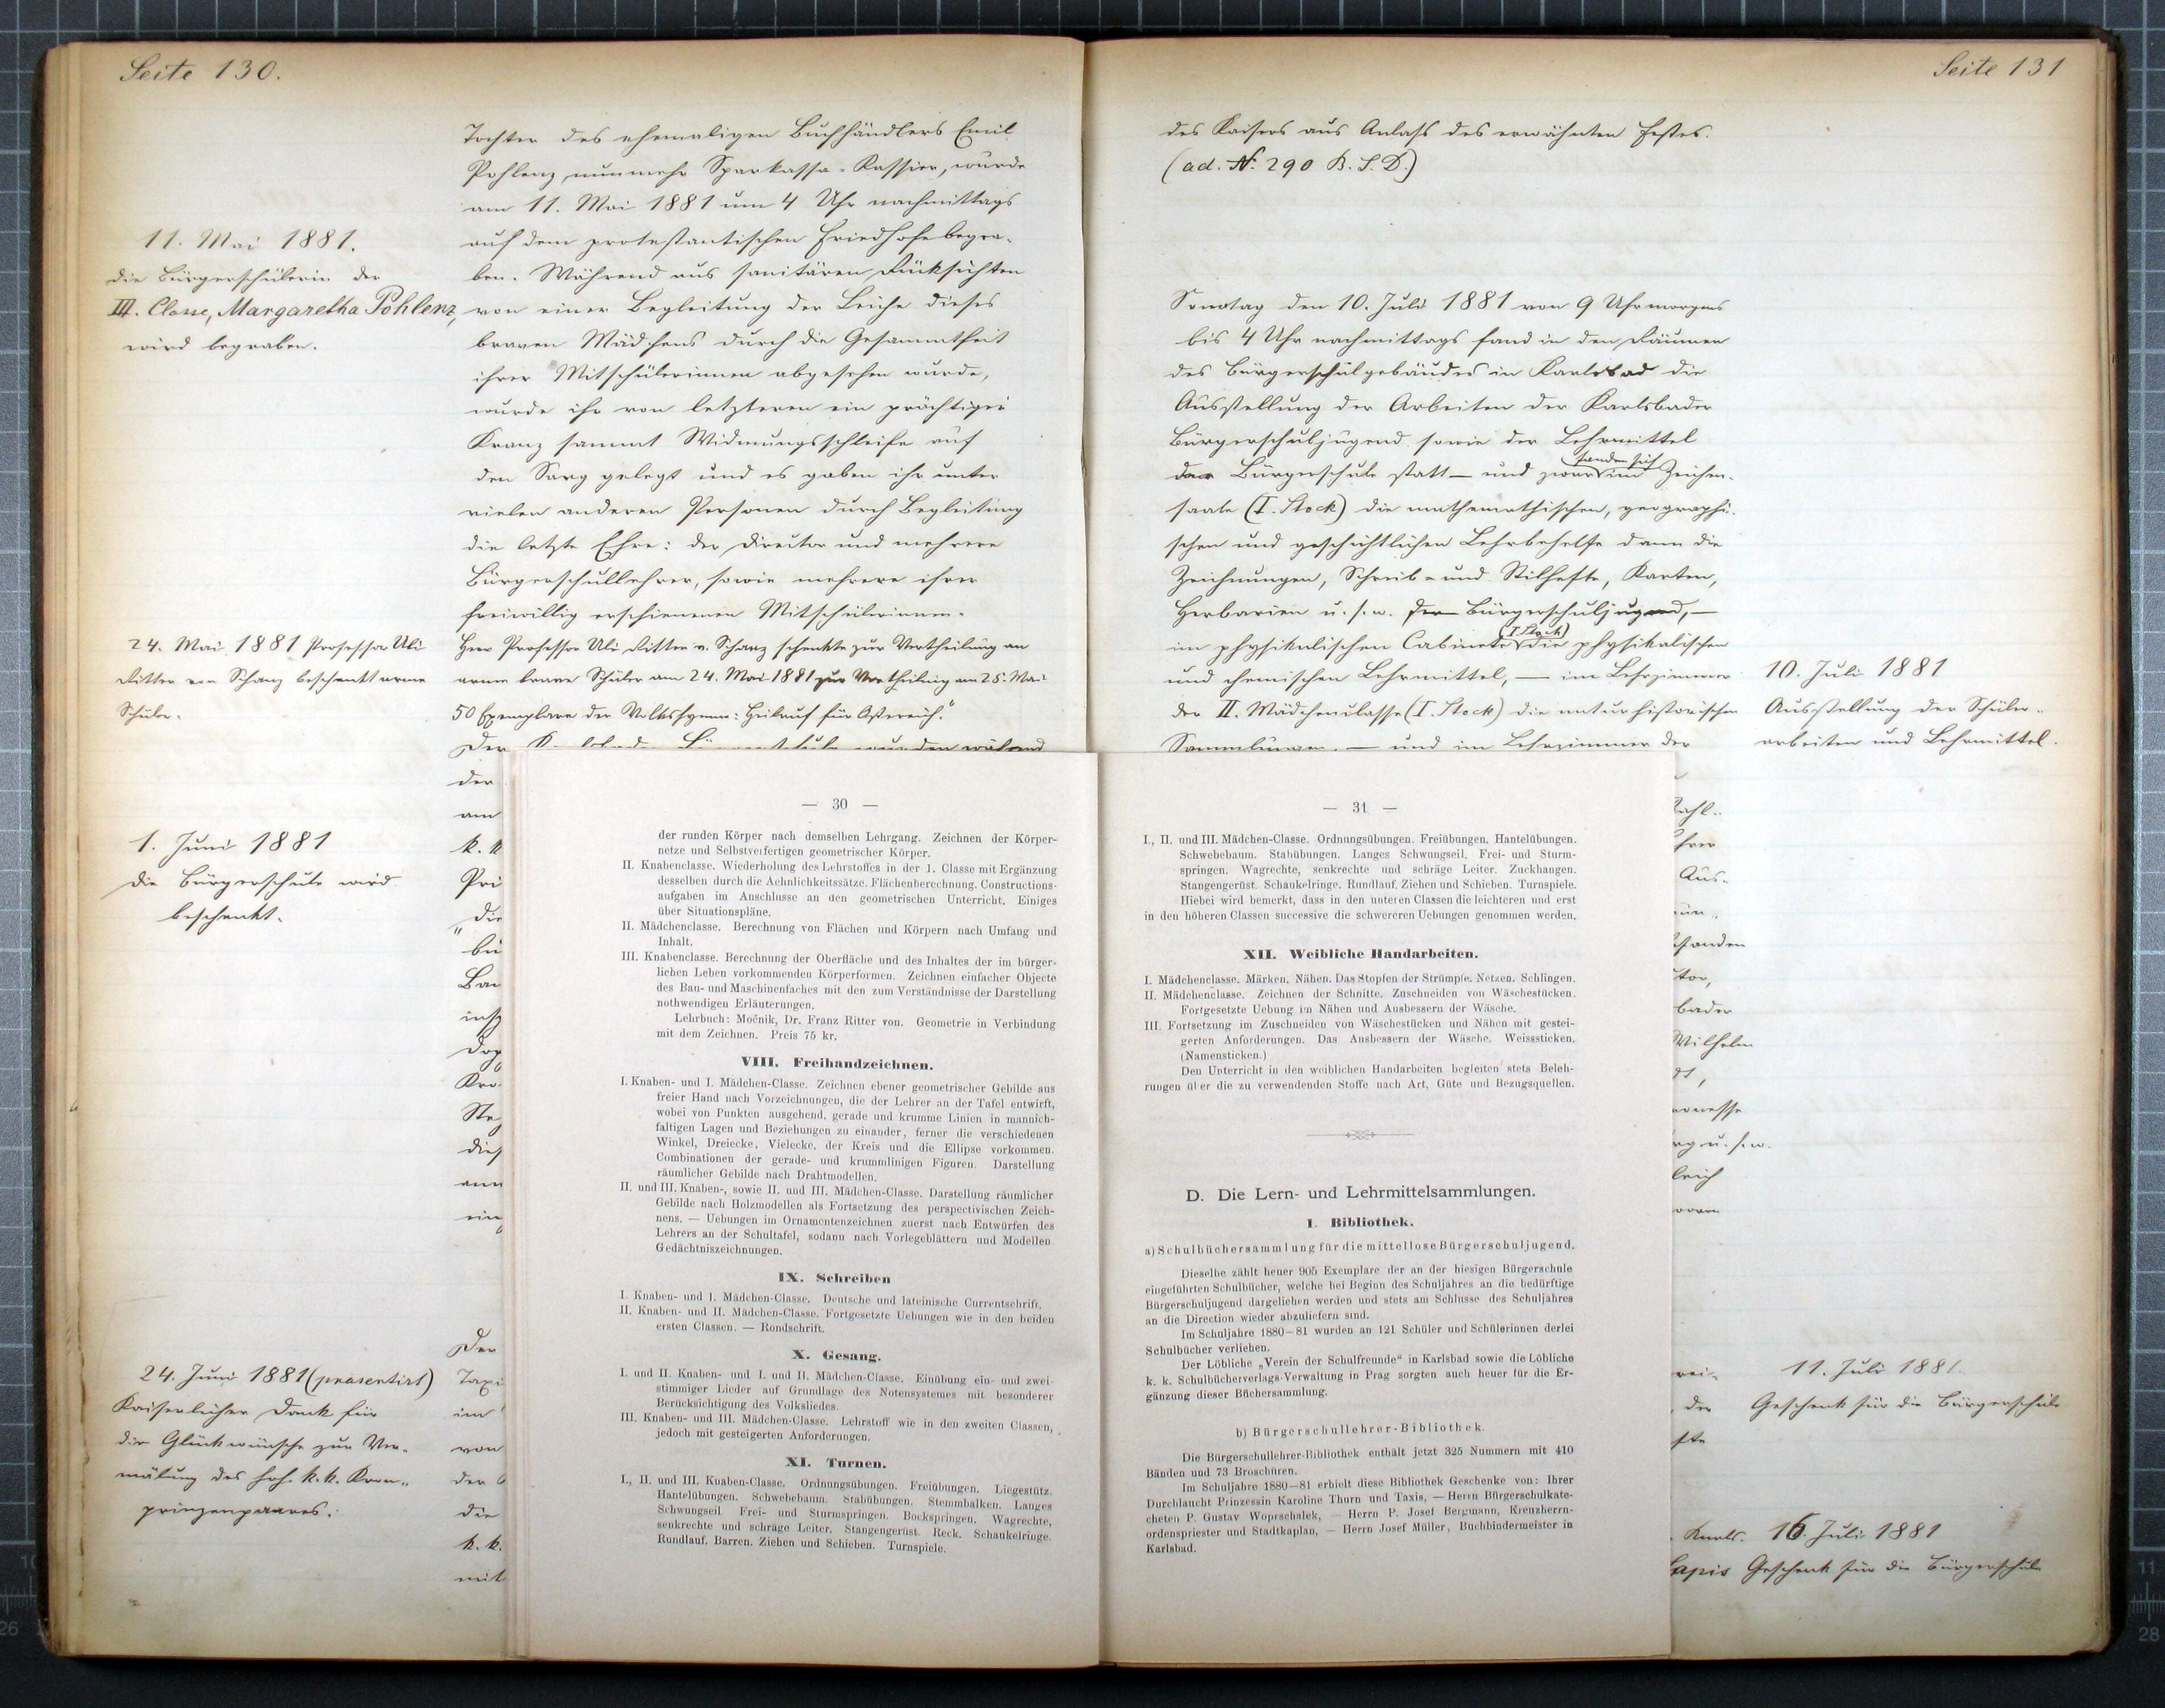 Seite 130.
Tochter des ehemaligen Buchhändlers Emil
Pohlenz, nunmehr Sparkassa-Kassier, wurde
am 11. Mai 1881 um 4 Uhr nachmittags
auf dem protestantischen Friedhofe begra-
ben. Während aus sanitären Rücksichten
von einer Begleitung der Leiche dieses
braven Mädchens durch die Gesammtheit
ihrer Mitschülerinnen abgesehen wurde,
wurde ihr von letzteren ein prächtiger
Kranz sammt Widmungsschleife auf
den Sarg gelegt und es gaben ihr unter
vielen anderen Personen durch Begleitung
die letzte Ehre: der Director und mehrere
Bürgerschullehrer, sowie mehrere ihrer
freiwillig erschienenen Mitschülerinnen.
Herr Professor Uli Ritter v. Schanz schenkte zur Vertheilung an
arme brave Schüler am 24. Mai 1881 zur Vertheilung am 25. Mai
50 Exemplare der Volkshymne: Heilauf für Österreich."
Der
der
am
k. k
Pri
"die
bü
Bau
insp
Dop
Kro
Ste
dies
ann
ein
Der
Taxi
im
von
der
die
k. k.
mit
11. Mai 1881.
die Bürgerschülerin der
III. Classe, Margaretha Pohlenz,
wird begraben.
24. Mai 1881 Professor Uli
Ritter von Schanz beschenkt arme
Schüler.
1. Juni 1881
die Bürgerschule wird
beschenkt.
24. Juni 1881 (präsentirt)
Kaiserlicher Dank für
die Glückwünsche zur Ver-
mälung des hoh. k. k. Kron-
prinzenpaares.
— 30 —
der runden Körper nach demselben Lehrgang. Zeichnen der Körper-
netze und Selbstverfertigen geometrischer Körper.
II. Knabenclasse. Wiederholung des Lehrstoffes in der 1. Classe mit Ergänzung
desselben durch die Aehnlichkeitssätze. Flächenberechnung. Constructions-
aufgaben im Anschlusse an den geometrischen Unterricht. Einiges
über Situationspläne.
II. Mädchenclasse. Berechnung von Flächen und Körpern nach Umfang und
Inhalt.
III. Knabenclasse. Berechnung der Oberfläche und des Inhaltes der im bürger-
lichen Leben vorkommenden Körperformen. Zeichnen einfacher Objecte
des Bau- und Maschinenfaches mit den zum Verständnisse der Darstellung
nothwendigen Erläuterungen.
Lehrbuch: Močnik, Dr. Franz Ritter von. Geometrie in Verbindung
mit dem Zeichnen. Preis 75 kr.
VIII. Freihandzeichnen.
I. Knaben- und I. Mädchen-Classe. Zeichnen ebener geometrischer Gebilde aus
freier Hand nach Vorzeichnungen, die der Lehrer an der Tafel entwirft,
wobei von Punkten ausgehend, gerade und krumme Linien in mannich-
faltigen Lagen und Beziehungen zu einander, ferner die verschiedenen
Winkel, Dreiecke, Vielecke, der Kreis und die Ellipse vorkommen.
Combinationen der gerade- und krummlinigen Figuren. Darstellung
räumlicher Gebilde nach Drahtmodellen.
II. und III. Knaben-, sowie II. und III. Mädchen-Classe. Darstellung räumlicher
Gebilde nach Holzmodellen als Fortsetzung des perspectivischen Zeich-
nens. — Uebungen im Ornamentenzeichnen zuerst nach Entwürfen des
Lehrers an der Schultafel, sodann nach Vorlegeblättern und Modellen
Gedächtniszeichnungen.
IX. Schreiben
I. Knaben- und I. Mädchen-Classe. Deutsche und lateinische Currentschrift.
II. Knaben- und II. Mädchen-Classe. Fortgesetzte Uebungen wie in den beiden
ersten Classen. — Rondschrift.
X. Gesang.
I. und II. Knaben- und I. und II. Mädchen-Classe. Einübung ein- und zwei-
stimmiger Lieder auf Grundlage des Notensystemes mit besonderer
Berücksichtigung des Volksliedes.
III. Knaben- und III. Mädchen-Classe. Lehrstoff wie in den zweiten Classen,
jedoch mit gesteigerten Anforderungen.
XI. Turnen.
I., II. und III. Knaben-Classe. Ordnungsübungen. Freiübungen. Liegestütz.
Hantelübungen. Schwebebaum. Stabübungen. Stemmbalken. Langes
Schwungseil. Frei- und Sturmspringen. Bockspringen. Wagrechte,
senkrechte und schräge Leiter. Stangengerüst. Reck. Schaukelringe.
Rundlauf. Barren. Ziehen und Schieben. Turnspiele.
Seite 131
des Kaisers aus Anlass des erwähnten Festes.
(ad. N. 290 B. S. D.)
Sonntag den 10. Juli 1881 von 9 Uhr morgens
bis 4 Uhr nachmittags fand in den Räumen
des Bürgerschulgebäudes in Karlsbad die
Ausstellung der Arbeiten der Karlsbader
Bürgerschuljugend sowie der Lehrmittel
der Bürgerschule statt — und zwar fanden sich im Zeichen-
saale (I. Stock) die mathemathischen, geographi-
schen und geschichtlichen Lehrbehelfe dann die
Zeichnungen, Schreib- und Stilhefte, Karten,
Herbarien u. s. w. der Bürgerschuljugend, —
im physikalischen Cabinete (I Stock) die physikalischen
und chemischen Lehrmittel, — im Lehrzimmer
der II. Mädchenclasse (I. Stock) die naturhistorischen
Sammlungen. — und im Lehrzimmer der
hrer
Aus-
standen
tor,
bader
Wilhelm
u. s. w.
leich
der
Karls.
10. Juli 1881
Ausstellung der Schüler-
arbeiten und Lehrmittel.
11. Juli 1881.
Geschenk für die Bürgerschule
16. Juli 1881
Geschenk für die Bürgerschule
— 31 —
I., II. und III. Mädchen-Classe. Ordnungsübungen. Freiübungen. Hantelübungen.
Schwebebaum. Stabübungen. Langes Schwungseil. Frei- und Sturm-
springen. Wagrechte, senkrechte und schräge Leiter. Zuckhangen.
Stangengerüst. Schaukelringe. Rundlauf. Ziehen und Schieben. Turnspiele.
Hiebei wird bemerkt, dass in den unteren Classen die leichteren und erst
in den höheren Classen successive die schwereren Uebungen genommen werden.
XII. Weibliche Handarbeiten.
I. Mädchenclasse. Märken. Nähen. Das Stopfen der Strümpfe. Netzen. Schlingen.
II. Mädchenclasse. Zeichnen der Schnitte. Zuschneiden von Wäschestücken.
Fortgesetzte Uebung im Nähen und Ausbessern der Wäsche.
III. Fortsetzung im Zuschneiden von Wäschestücken und Nähen mit gestei-
gerten Anforderungen. Das Ausbessern der Wäsche. Weisssticken.
(Namensticken.)
Den Unterricht in den weiblichen Handarbeiten begleiten stets Beleh-
rungen über die zu verwendenden Stoffe nach Art, Güte und Bezugsquellen.
D. Die Lern- und Lehrmittelsammlungen.
1. Bibliothek.
a) Schulbüchersammlung für die mittellose Bürgerschuljugend.
Dieselbe zählt heuer 905 Exemplare der an der hiesigen Bürgerschule
eingeführten Schulbücher, welche bei Beginn des Schuljahres an die bedürftige
Bürgerschuljugend dargeliehen werden und stets am Schlusse des Schuljahres
an die Direction wieder abzuliefern sind.
Im Schuljahre 1880—81 wurden an 121 Schüler und Schülerinnen derlei
Schulbücher verliehen.
Der Löbliche „Verein der Schulfreunde“ in Karlsbad sowie die Löbliche
k. k. Schulbücherverlags-Verwaltung in Prag sorgten auch heuer für die Er-
gänzung dieser Büchersammlung.
b) Bürgerschullehrer-Bibliothek.
Die Bürgerschullehrer-Bibliothek enthält jetzt 325 Nummern mit 410
Bänden und 73 Broschüren.
Im Schuljahre 1880—81 erhielt diese Bibliothek Geschenke von: Ihrer
Durchlaucht Prinzessin Karoline Thurn und Taxis, — Herrn Bürgerschulkate-
cheten P. Gustav Woprschalek, — Herrn P. Josef Bergmann, Kreuzherrn-
ordenspriester und Stadtkaplan, — Herrn Josef Müller, Buchbindermeister in
Karlsbad.